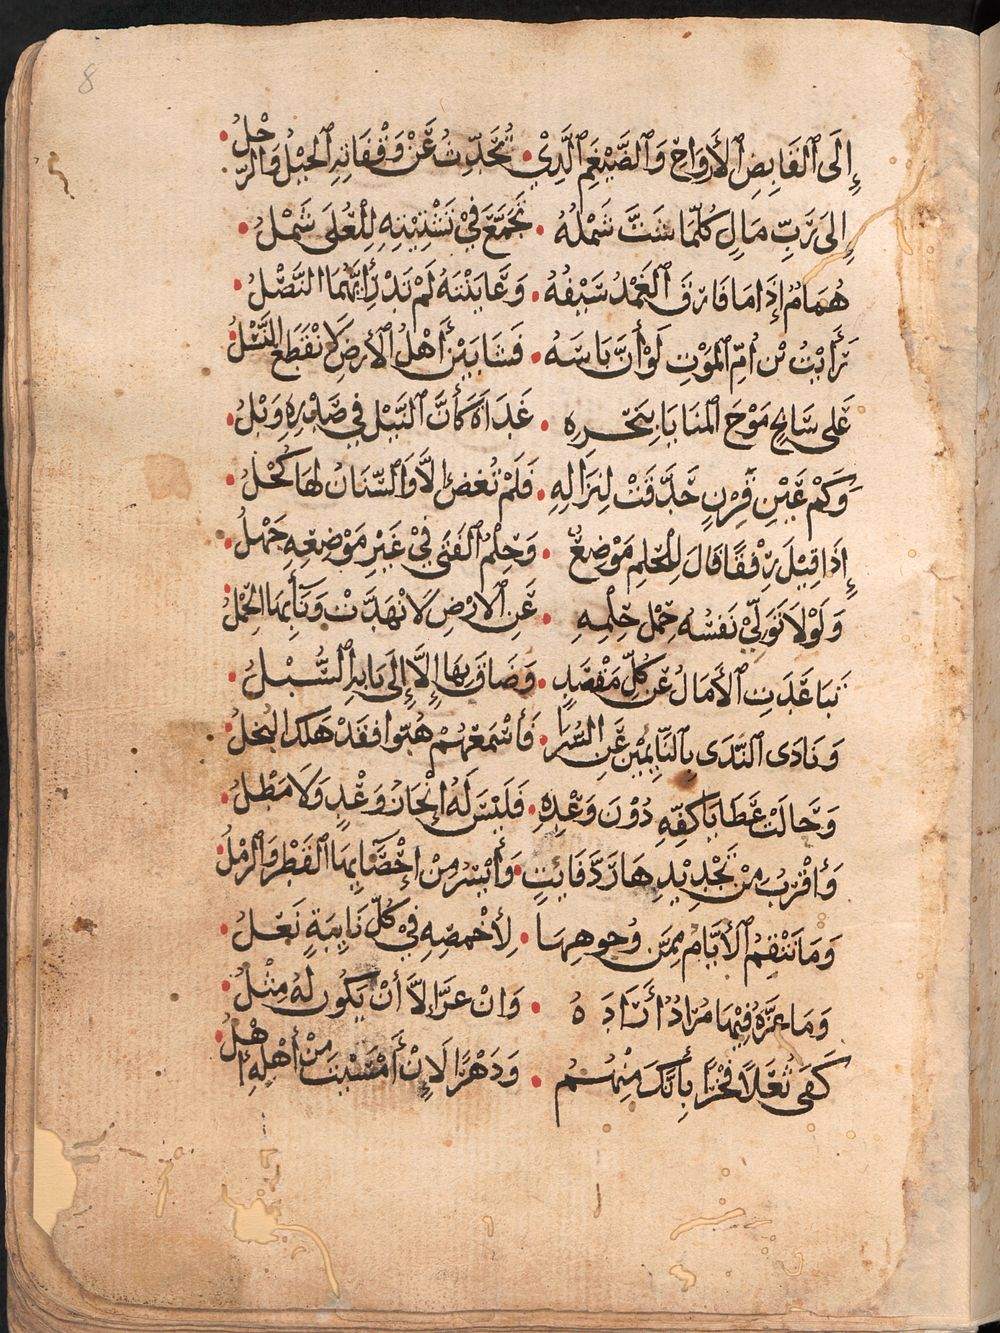 8
إِلَى ٱلقَابِضِ ٱلأَرْوَاحِ وَٱلضَّيْغَمِ ٱلَّذِيْ • تُحَدِّثُ عَنْ وَقْفَاتِهِ ٱلخَيْلُ وَالرَّجْلُ •
إِلَى رَبِّ مَالٍ كُلَّمَا شَتَّ شَمْلُهُ • تَجَمَّعَ فِيْ تَشْتِيْتِهِ لِلْعُلَى شَمْلُ •
هُمَامٌ إِذَامَا فَارَقَ ٱلغَمْدُ سَيْفُهُ • وَعَايَنْتَهُ لَمْ تَدْرِ أَيُّهُمَا النَّصْلُ •
رَأَيْتُ بْنَ أُمِّ ٱلمَوْتِ لَوْ أَنَّ بَاسَهُ • فَشَا بَيْنَ أَهْلِ ٱلأَرْضِ لَانْقَطَعَ النَّسْلُ •
عَلى سَابِحٍ مَوْجَ ٱلمَنَايَا بِنَحْرِهِ • غَدَاةَ كَأَنَّ النَّبْلَ فِي صَدْرِهِ وَبْلُ •
وَكَمْ عَيْنِ قِرْنٍ حَدَّقَتْ لِنِزَالِهِ • فَلَمْ تُغْضِ إِلَّا وَالسِّنَانُ لَهَا كُحْلُ •
إِذَا قِيْلَ رِفْقًا قَالَ لِلْحِلمِ مَوْضِعٌ • وَحِلْمُ ٱلفَتَى فِيْ غَيْرِ مَوْضِعِهِ جَهْلُ •
وَلَوْلَا تَوَلِّيْ نَفسُه حَمْلَ حِلْمِهِ • عَنِ ٱلأَرْضِ لَانْهَدَّتْ وَنَأبِهَا الحِمْلُ •
تَبَاعَدَتِ ٱلأَمَالُ عَن كُلِّ مَقْصَدٍ • وَضَاقَ بِهَا إِلَّا إِلَى بَابِهِ ٱلسُّبْلُ •
وَنَادَى النَّدَى بِالنَّايِمِيْنَ عَنِ السُّرَا • فَأَسْمَعَهُمْ هُبّوا فَقَدْ هَلَكَ البُخلُ •
وَحَالَتْ عَطَايَا كَفِّهِ دُوْنَ وَعْدِهِ • فَلَيْسَ لَهُ إِنْجَازُ وَعْدٍ وَلَا مَطْلُ •
وَأَقْرَبُ مِنْ تَحْدِيْدِهَا رَدُّ فَايِتٍ • وَأَيْسَرُ مِنْ إِحْصَايِهَا ٱلقَطْرُ وَالرَّمْلُ •
وَمَا تَنْقِمُ ٱلأَيَّامُ مِمَّن وُجوهِهَا • لِأَخْمصِهِ فِيْ كُلِّ نَايِبَةٍ نَعْلُ •
وَمَا عَزَّهُ فِيْهَا مُرَادٌ أَرَادَهُ • وَانْ عزَّ إِلَّا أَنْ يَكُونَ لَهُ مِثْلُ •
كَفَى ثُعَلًا فَخْرًا بِأَنَّكَ مِنْهُمُ • وَدَهْرًا لَإِنْ أَمْسَيْتَ مِنْ أَهْلِهِ اهْلُ •